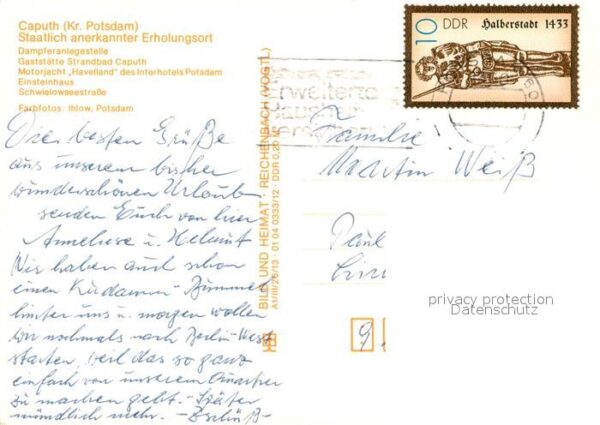 Caputh (Kr. Potsdam)
Staatlich anerkannter Erholungsort
Dampferanlegestelle
Gaststätte Strandbad Caputh
Motorjacht „Havelland" des Interhotels Potsdam
Einsteinhaus
Schwielowseestraße
Farbfotos: Ihlow, Potsdam
Die besten Grüße
aus unserem bisher
wunderschönen Urlaub
senden Euch von hier
Anneliese u. Helmut
Wir haben auch schon
einen Kudamm-Bummel
hinter uns u. morgen wollen
wir nochmals nach Berlin-West
starten, weil das so ganz
einfach von unserem Quartier
zu machen geht. - Später
mündlich mehr. -
BILD UND HEIMAT · REICHENBACH (VOGTL)
A1/III/26/13 · 01 04 0333/12 · DDR 0,20 M
10 DDR Halberstadt 1433
Familie
Martin Weiß
privacy protection
Datenschutz
9